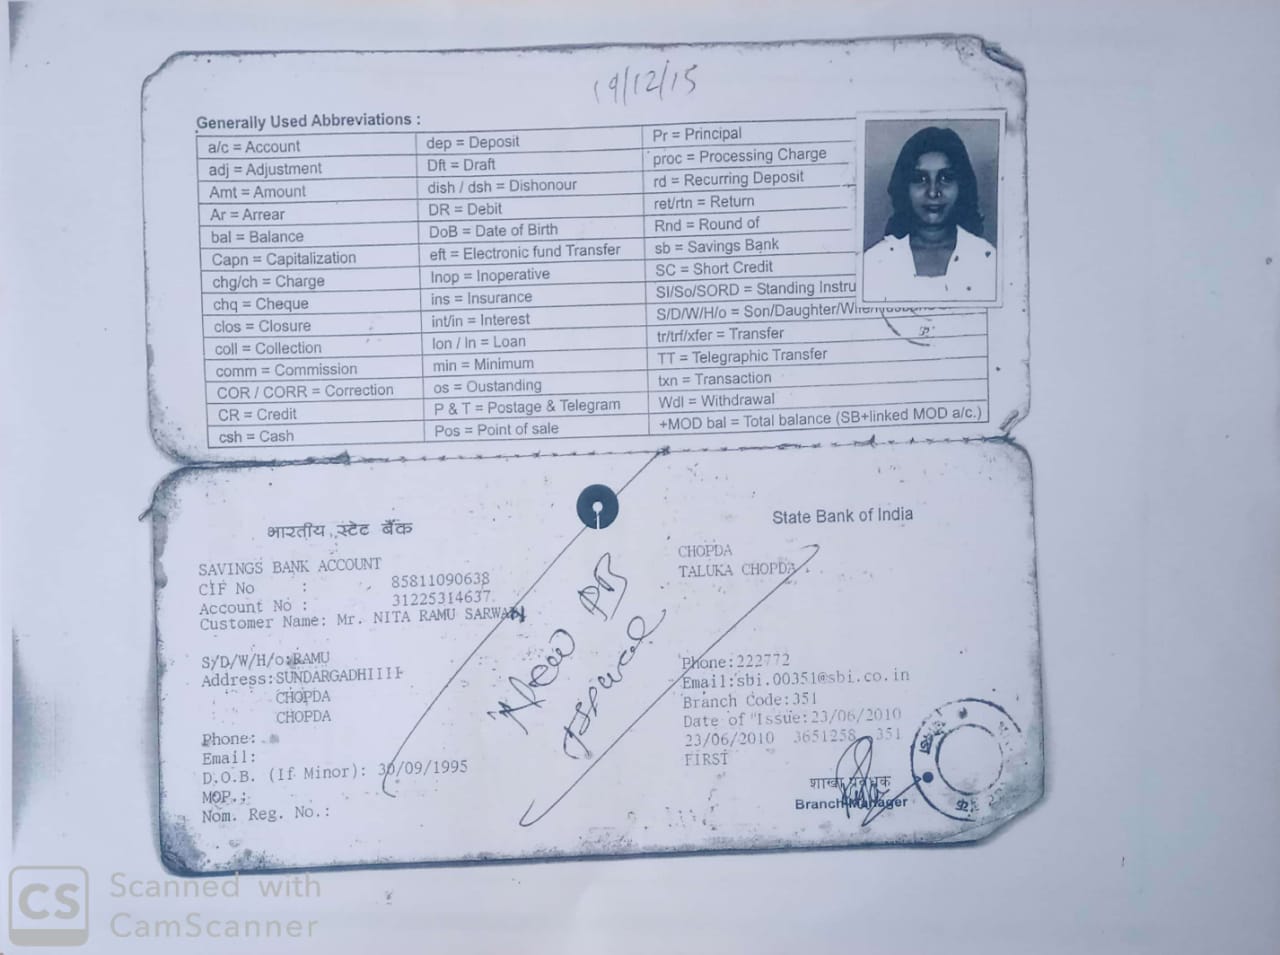 19/12/15
Generally Used Abbreviations :
a/c = Account
adj = Adjustment
Amt = Amount
Ar = Arrear
bal = Balance
Capn = Capitalization
chg/ch = Charge
chq = Cheque
clos = Closure
coll = Collection
comm = Commission
COR / CORR = Correction
CR = Credit
csh = Cash
dep = Deposit
Dft = Draft
dish / dsh = Dishonour
DR = Debit
DoB = Date of Birth
eft = Electronic fund Transfer
Inop = Inoperative
ins = Insurance
int/in = Interest
lon / ln = Loan
min = Minimum
os = Oustanding
P & T = Postage & Telegram
Pos = Point of sale
Pr = Principal
proc = Processing Charge
rd = Recurring Deposit
ret/rtn = Return
Rnd = Round of
sb = Savings Bank
SC = Short Credit
SI/So/SORD = Standing Instru
S/D/W/H/o = Son/Daughter/Wife/
tr/trf/xfer = Transfer
TT = Telegraphic Transfer
txn = Transaction
Wdl = Withdrawal
+MOD bal = Total balance (SB+linked MOD a/c.)
भारतीय स्टेट बैंक
State Bank of India
SAVINGS BANK ACCOUNT
CIF No : 85811090638
Account No : 31225314637
Customer Name: Mr. NITA RAMU
S/D/W/H/o: RAMU
Address: SUNDARGADHIIII
CHOPDA
CHOPDA
Phone:
Email:
D.O.B. (If Minor): 30/09/1995
MOP.:
Nom. Reg. No.:
New PB
Issued
CHOPDA
TALUKA CHOPDA
Phone:222772
Email:sbi.00351@sbi.co.in
Branch Code:351
Date of Issue:23/06/2010
23/06/2010 3651258 351
FIRST
शाखा प्रबंधक
Branch Manager
CS Scanned with
CamScanner